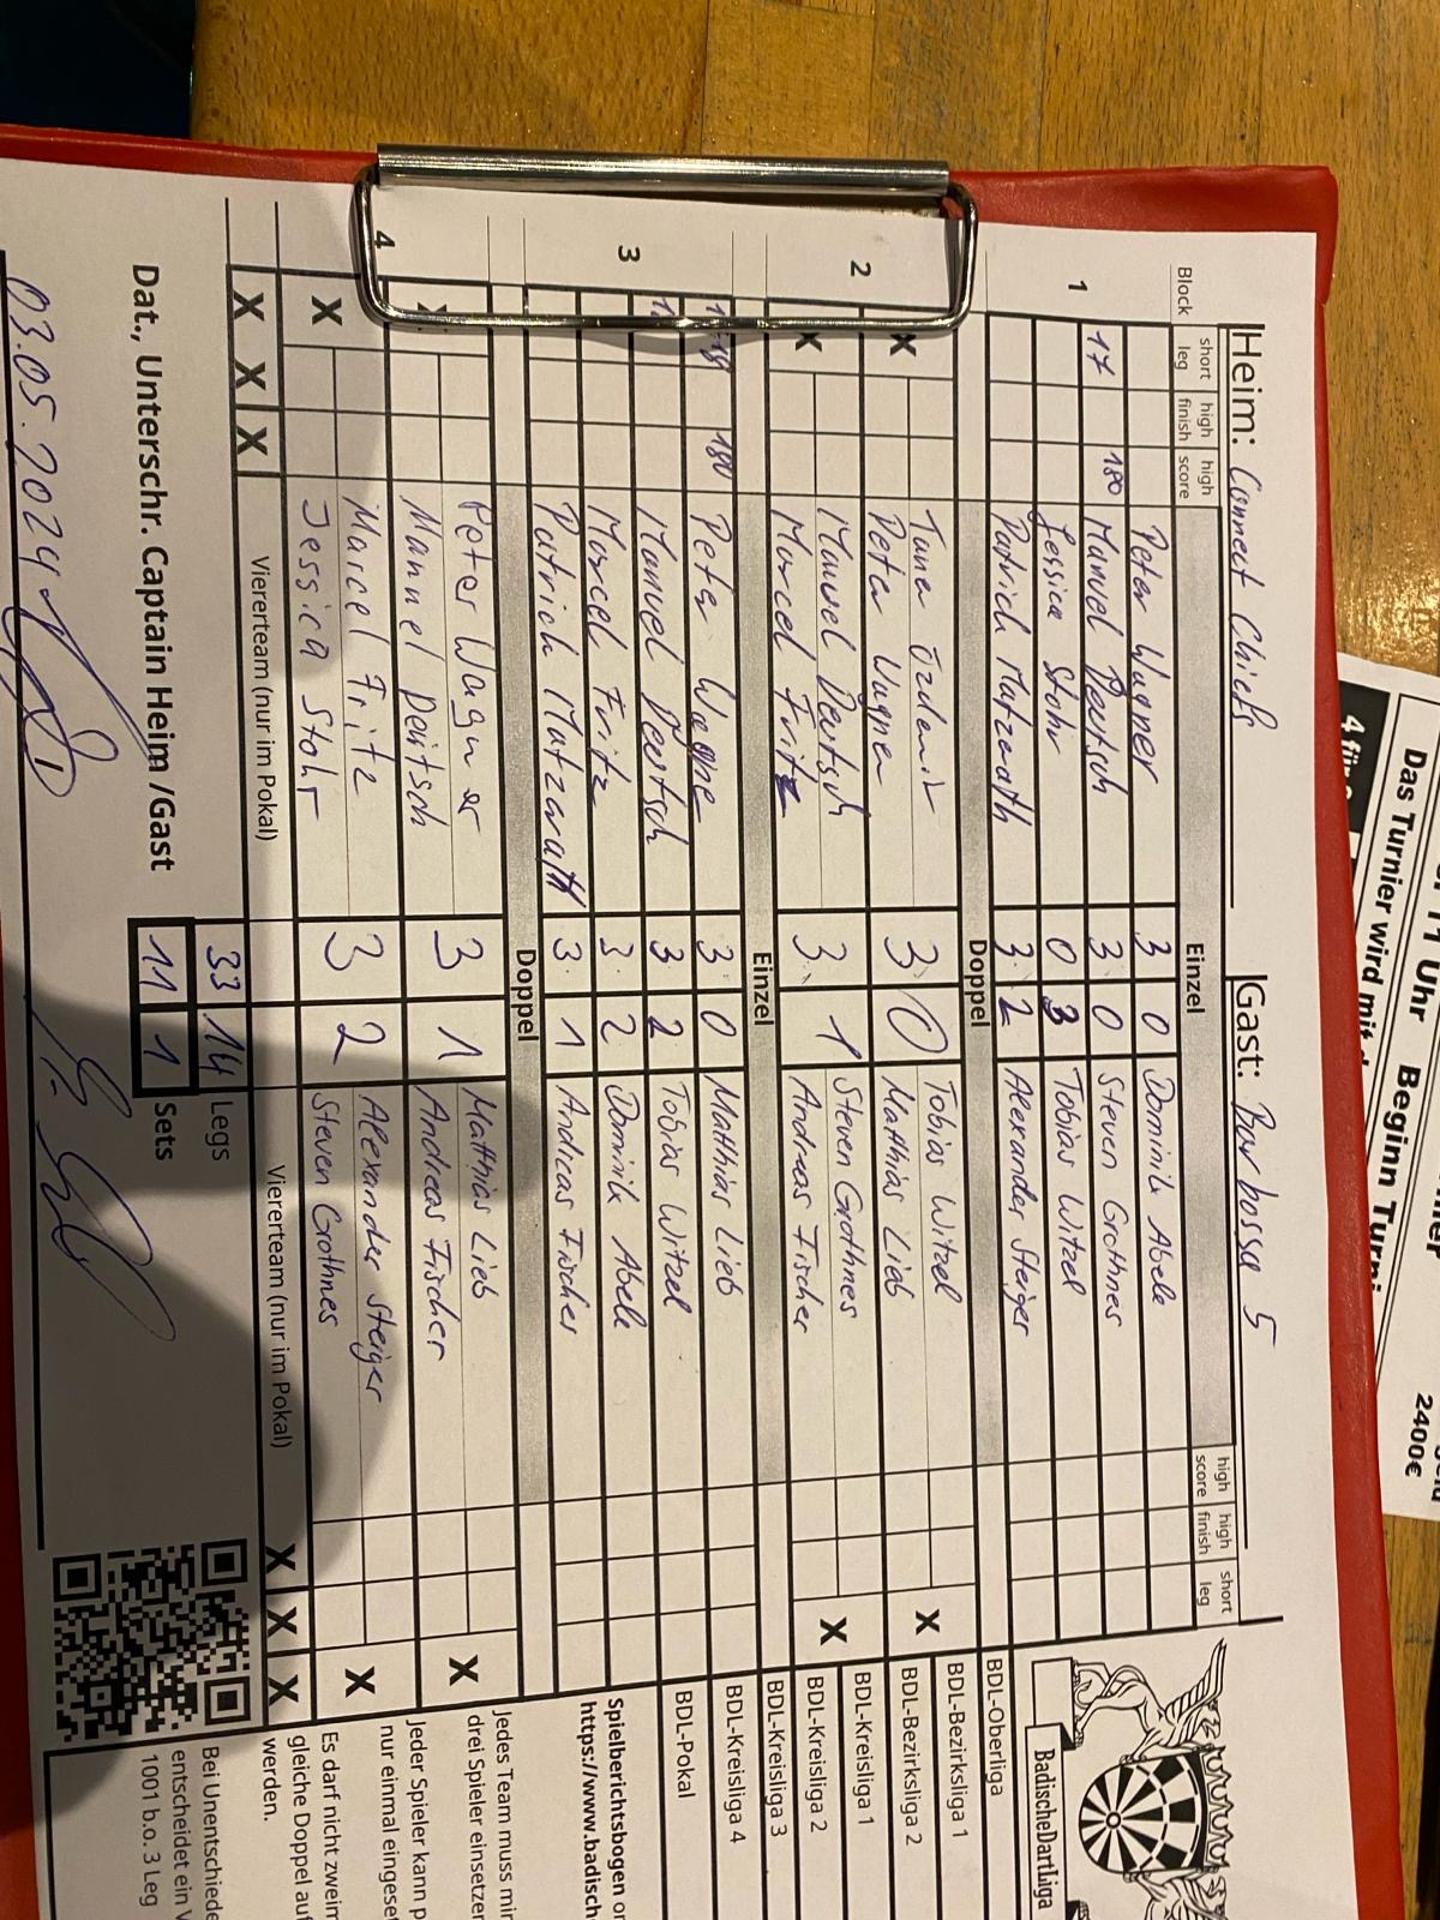 Heim: Connect Chiefs Gast: Barbossa 5
Block short leg high finish high score Einzel high score high finish short leg
1
Peter Wagner 3 0 Dominik Abele
17 180 Manuel Deutsch 3 0 Steven Grothnes
Jessica Stohr 0 3 Tobias Witzel
Patrich Matzerath 3 2 Alexander Steiger
Doppel
2
X Tuna Özdemir 3 0 Tobias Witzel X
Peter Wagner Matthias Lieb
X Manuel Deutsch 3 1 Steven Grothnes X
Marcel Fritz Andreas Fischer
Einzel
3
180 Peter Wagner 3 0 Matthias Lieb
Manuel Deutsch 3 2 Tobias Witzel
Marcel Fritz 3 2 Dominik Abele
Patrich Matzerath 3 1 Andreas Fischer
Doppel
4
Peter Wagner 3 1 Matthias Lieb X
Manuel Deutsch Andreas Fischer
X Marcel Fritz 3 2 Alexander Steiger X
Jessica Stohr Steven Grothnes
X X X Viererteam (nur im Pokal) Viererteam (nur im Pokal) X X X
33 14 Legs
Dat., Unterschr. Captain Heim /Gast 11 1 Sets
03.05.2024
BadischeDartLiga
BDL-Oberliga
BDL-Bezirksliga 1
BDL-Bezirksliga 2
BDL-Kreisliga 1
BDL-Kreisliga 2
BDL-Kreisliga 3
BDL-Kreisliga 4
BDL-Pokal
Spielberichtsbogen
https://www.badisch
Jedes Team muss
drei Spieler einsetzen
Jeder Spieler kann
nur einmal
Es darf nicht
gleiche Doppel
werden.
Bei
entscheidet ein
1001 b.o. 3 Leg
11 Uhr Beginn
2400€
Das Turnier wird